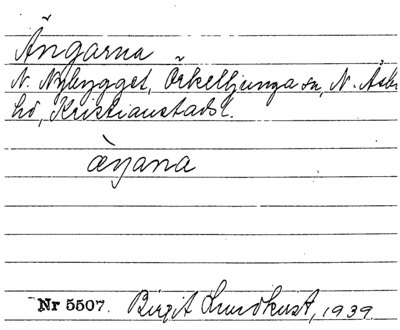 Ängarna
N. Nybygget, Örkelljunga sn, N. Åsbo
hd, Kristianstads l.
æŋana
Nr 5507. Birgit Lundkvist, 1939.